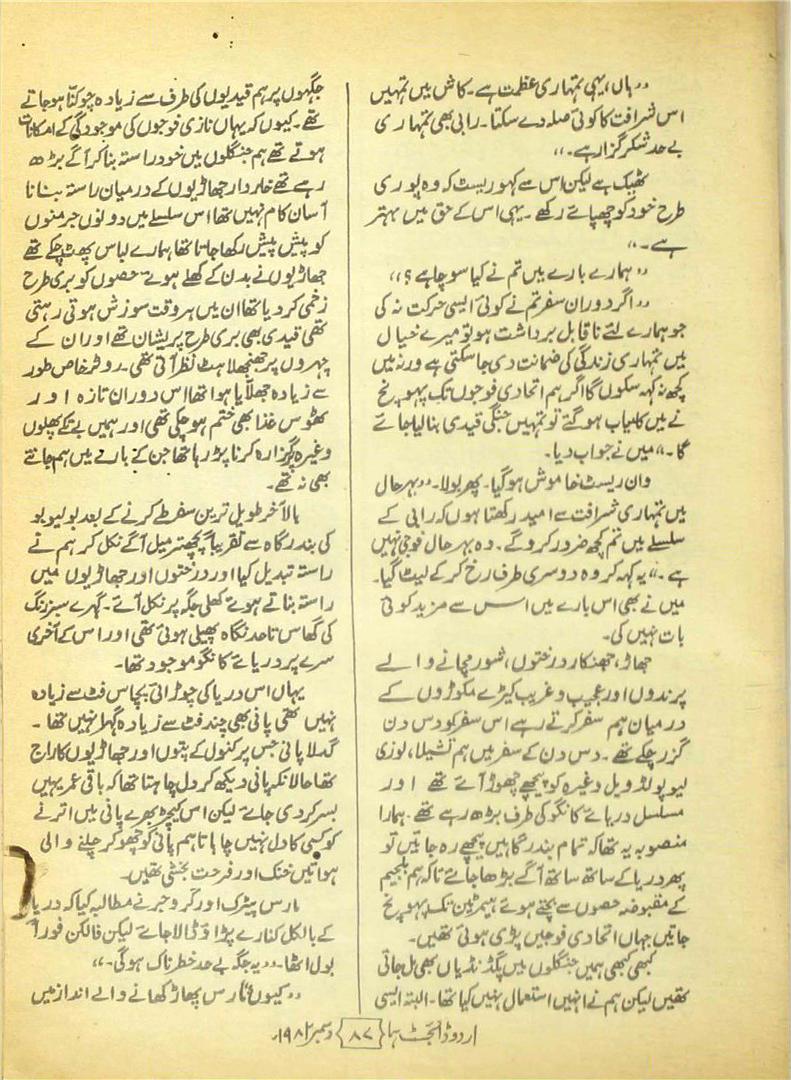 ”ہاں، یہی تمہاری عظمت ہے۔ کاش میں تمہیں
اس شرافت کا کوئی صلہ دے سکتا۔ رابی بھی تمہاری
بے حد شکر گزار ہے۔“
ٹھیک ہے لیکن اس سے کہو ریسٹ کہ وہ پوری
طرح خود کو چھپائے رکھے۔ یہی اس کے حق میں بہتر
ہے۔“
”ہمارے بارے میں تم نے کیا سوچا ہے؟“
”اگر دوران سفر تم نے کوئی ایسی حرکت نہ کی
جو ہمارے لئے ناقابل برداشت ہو تو میرے خیال
میں تمہاری زندگی کی ضمانت دی جا سکتی ہے ورنہ میں
کچھ نہ کہہ سکوں گا اگر ہم اتحادی فوجوں تک پہونچ
نے میں کامیاب ہو گئے تو تمہیں جنگی قیدی بنا لیا جائے
گا۔“ میں نے جواب دیا۔
وان ریسٹ خاموش ہو گیا۔ پھر بولا۔ ”بہر حال
میں تمہاری شرافت سے امید رکھتا ہوں کہ رابی کے
سلسلے میں تم کچھ ضرور کرو گے۔ وہ بہر حال فوجی نہیں
ہے۔“ یہ کہہ کر وہ دوسری طرف رخ کر کے لیٹ گیا۔
میں نے بھی اس بارے میں اس سے مزید کوئی
بات نہیں کی۔
جھاڑ، جھنکار درختوں، شور مچانے والے
پرندوں اور عجیب و غریب کیڑے مکوڑوں کے
درمیان ہم سفر کرتے رہے اس سفر کو دس دن
گزر چکے تھے۔ دس دن کے سفر میں ہم نشیلا، لوزی
لیوپولڈ ویل وغیرہ کو پیچھے چھوڑ آئے تھے اور
مسلسل دریائے کانگو کی طرف بڑھ رہے تھے۔ ہمارا
منصوبہ یہ تھا کہ تمام بندرگاہیں پیچھے رہ جائیں تو
پھر دریا کے ساتھ ساتھ آگے بڑھا جائے تاکہ ہم بلجیم
کے مقبوضہ حصوں سے بچتے ہوئے تک پہونچ
جائیں جہاں اتحادی فوجیں پڑی ہوئی تھیں۔
کبھی کبھی ہمیں جنگلوں میں پگڈنڈیاں بھی مل جاتی
تھیں لیکن ہم نے انہیں استعمال نہیں کیا تھا۔ البتہ ایسی
جگہوں پر ہم قیدیوں کی طرف سے زیادہ چوکنا ہو جاتے
تھے۔ کیوں کہ یہاں نازی فوجوں کی موجودگی کے امکانات
ہوتے تھے ہم جنگلوں میں خود راستہ بنا کر آگے بڑھ
رہے تھے خاردار جھاڑیوں کے درمیان راستہ بنانا
آسان کام نہیں تھا اس سلسلے میں دونوں جرمنوں
کو پیش پیش رکھا جاتا تھا ہمارے لباس پھٹ چکے تھے
جھاڑیوں نے بدن کے کھلے ہوئے حصوں کو بری طرح
زخمی کر دیا تھا ان میں ہر وقت سوزش ہوتی رہتی
تھی قیدی بھی بری طرح پریشان تھے اور ان کے
چہروں پر جھنجھلاہٹ نظر آتی تھی۔ روٹر خاص طور
سے زیادہ جھلایا ہوا تھا اس دوران تازہ اور
ٹھوس غذا بھی ختم ہو چکی تھی اور ہمیں بے تکے پھلوں
وغیرہ پر گزارہ کرنا پڑ رہا تھا جن کے بارے میں ہم جانتے
بھی نہ تھے۔
بالآخر طویل ترین سفر طے کرنے کے بعد بولیوبو
کی بندرگاہ سے تقریباً پچھتر میل آگے نکل کر ہم نے
راستہ تبدیل کیا اور درختوں اور جھاڑیوں میں
راستہ بناتے ہوئے کھلی جگہ پر نکل آئے۔ گہرے سبز رنگ
کی گھاس تا حد نگاہ پھیلی ہوئی تھی اور اس کے آخری
سرے پر دریائے کانگو موجود تھا۔
یہاں اس دریا کی چوڑائی پچاس فٹ سے زیادہ
نہیں تھی پانی بھی چند فٹ سے زیادہ گہرا نہیں تھا۔
گدلا پانی جس پر کنوں کے پتوں اور جھاڑیوں کا راج
تھا حالانکہ پانی دیکھ کر دل چاہتا تھا کہ باقی عمر یہیں
بسر کر دی جائے لیکن اس کیچڑ بھرے پانی میں اترنے
کو کسی کا دل نہیں چاہا تا ہم پانی کو چھو کر چلنے والی
ہوائیں خنک اور فرحت بخش تھیں۔
ہارس پیٹرک اور گروجر نے مطالبہ کیا کہ دریا
کے بالکل کنارے پڑاؤ ڈالا جائے لیکن فالکن فوراً
بول اٹھا۔ ”یہ جگہ بے حد خطرناک ہوگی۔“
”کیوں؟“ ہارس پھاڑ کھانے والے انداز میں
اردو ڈائجسٹ ہما {۸۷} دسمبر ۱۹۸۲ء